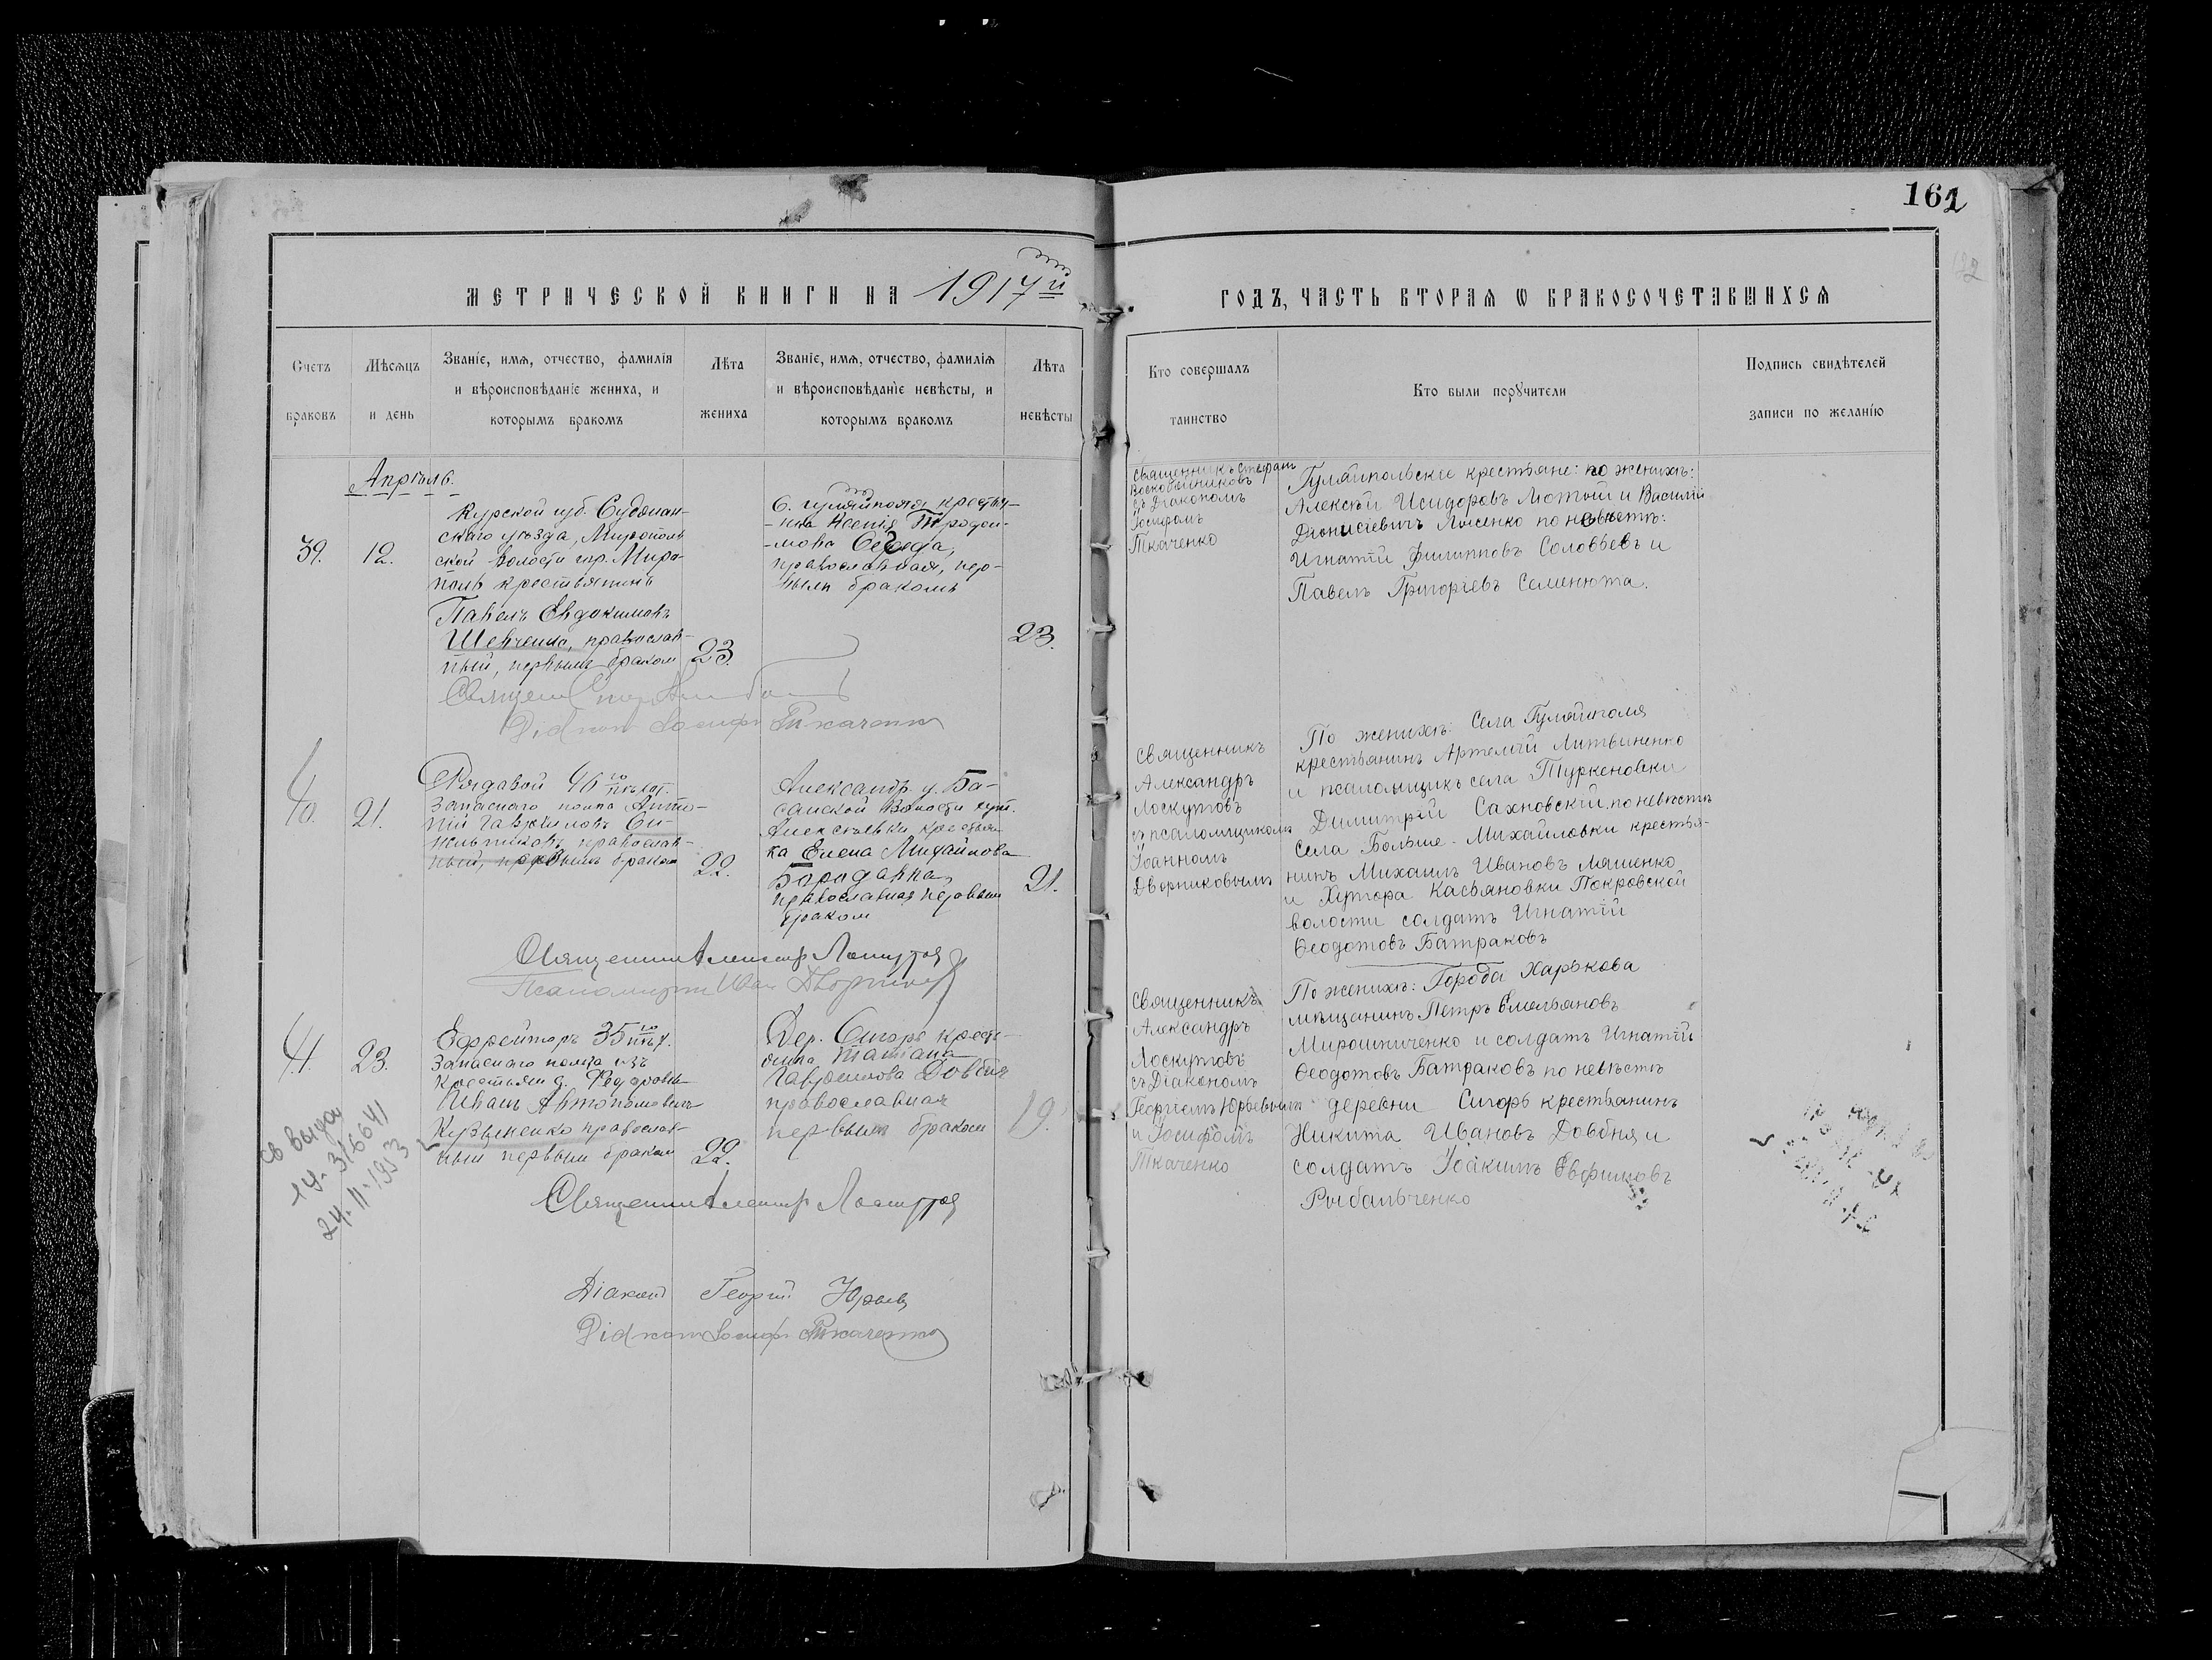 161
МЕТРИЧЕСКОЙ КНИГИ НА 1917й
ГОДЪ, ЧАСТЬ ВТОРАЯ Ѡ БРАКОСОЧЕТАВШИХСЯ
Счетъ
браковъ
Мѣсяцъ
и день
Званіе, имя, отчество, фамилія
и вѣроисповѣданіе жениха, и
которымъ бракомъ
Лѣта
жениха
Званіе, имя, отчество, фамилія
и вѣроисповѣданіе невѣсты, и
которымъ бракомъ
Лѣта
невѣсты
Кто совершалъ
таинство
Кто были поручители
Подпись свидѣтелей
записи по желанію
Апрѣль.
39.
12.
Курской губ. Суджан-
скаго уѣзда, Мирополь
ской волости гор. Миро-
поль крестьянинъ
Павелъ Евдокимовъ
Шевченко, православ-
ный, первымъ бракомъ
23.
С. Гуляйполя крестьян-
-мова Середа,
православная, пер-
вымъ бракомъ
23.
Священникъ Стефанъ
Воскобойниковъ
съ Діакономъ
Іосифомъ
Ткаченко
Гуляйпольскіе крестьяне: по женихѣ:
Алексѣй Исидоровъ Лютый и Василій
Діонисіевичъ Лысенко по невѣстѣ:
Игнатій Филипповъ Соловьевъ и
Павелъ Григоріевъ Семенюта.
Діаконъ Іосифъ Ткаченко
40.
21.
Рядовой 46го пѣхот.
запаснаго полка Анто-
ній Гавриловъ Си-
нельниковъ православ-
ный, первымъ бракомъ
22.
Александр. у. Ба-
санской волости хут.
Алексѣевки крестьян-
ка Елена Михайлова
Бородавка,
православная первымъ
бракомъ
21.
Священникъ
Александръ
Лоскутовъ
съ псаломщикомъ
Іоанномъ
Дворниковымъ
По женихѣ: Села Гуляйполя
крестьянинъ Артемій Литвиненко
и псаломщикъ села Туркеновки
Димитрій Сахновскій. по невѣстѣ
Села Больше-Михайловки крестья-
нинъ Михаилъ Ивановъ Ляшенко
и Хутора Касьяновки Покровской
волости солдатъ Игнатій
Ѳеодотовъ Батраковъ
Священникъ Александръ Лоскутовъ
Псаломщикъ Иванъ Дворниковъ
41.
23.
Ефрейторъ 35го пѣх.
запаснаго полка изъ
крестьянъ д. Федоровки
Иванъ Автономовичъ
Кузьменко православ-
ный первымъ бракомъ
22.
Дер. Сигоръ кресть-
янка Татіана
Гаврилова Довбня
православная
первымъ бракомъ
19.
Священникъ
Александръ
Лоскутовъ
съ Діакономъ
Георгіемъ Юрьевымъ
и Іосифомъ
Ткаченко
По женихѣ: Города Харькова
мѣщанинъ Петръ Емельяновъ
Мирошниченко и солдатъ Игнатій
Ѳеодотовъ Батраковъ по невѣстѣ
деревни Сигоръ крестьянинъ
Никита Ивановъ Довбня и
солдатъ Іоакимъ Евфимовъ
Рыбальченко
св выдан
1у-316641
24.11.1953
Священникъ Александръ Лоскутовъ
Діаконъ Георгій Юрьевъ
Діаконъ Іосифъ Ткаченко